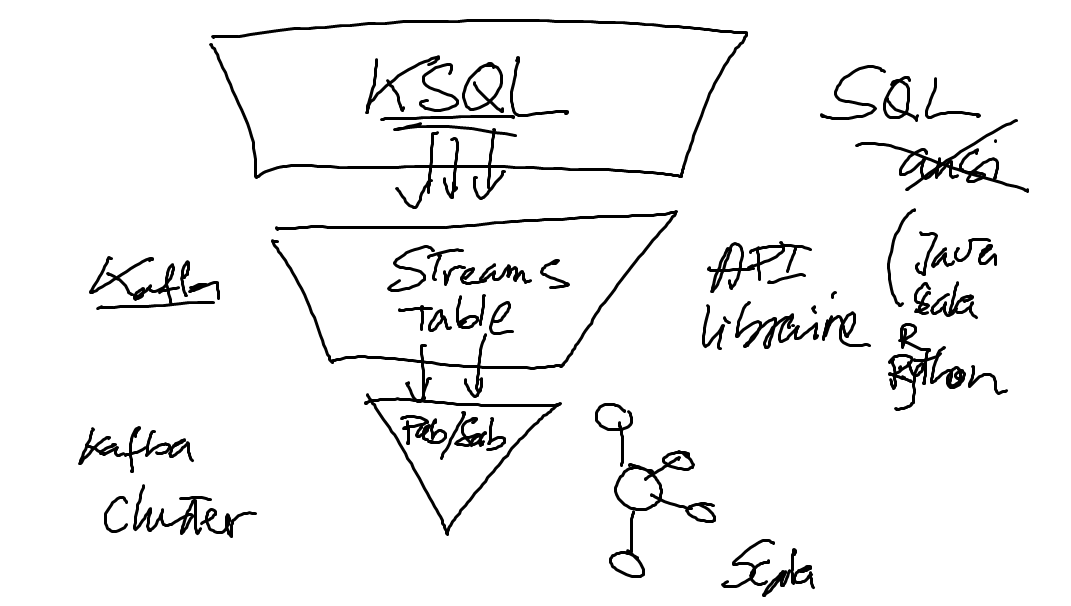 KSQL
SQL
ansi
Kafka
Streams
Table
API
libraire
Java
Scala
R
Python
Pub/Sub
Kafka
Cluster
Scala